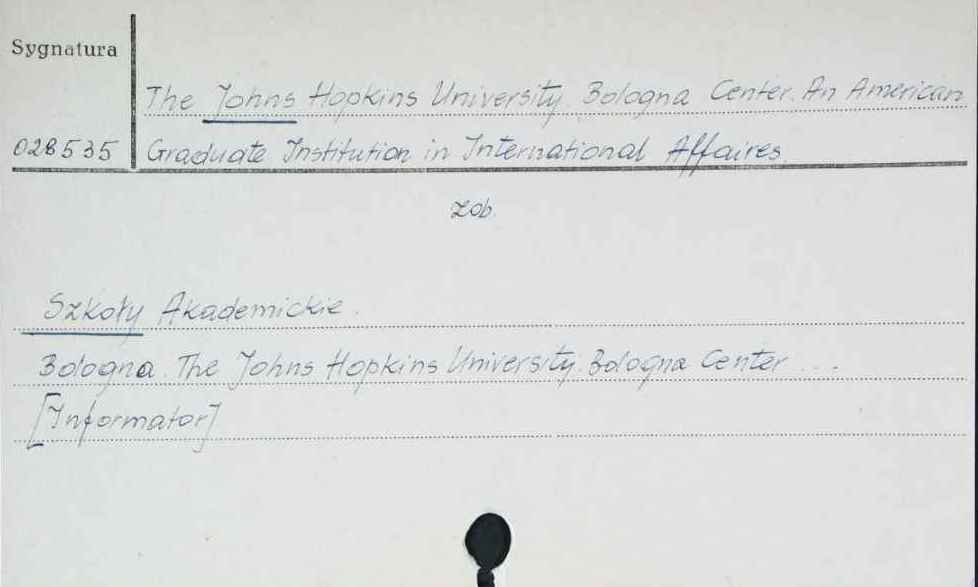 Sygnatura
The Johns Hopkins University. Bologna Center. An American
028535 Graduate Institution in International Affaires.
zob.
Szkoły Akademickie.
Bologna. The Johns Hopkins University. Bologna Center ...
[Informator]